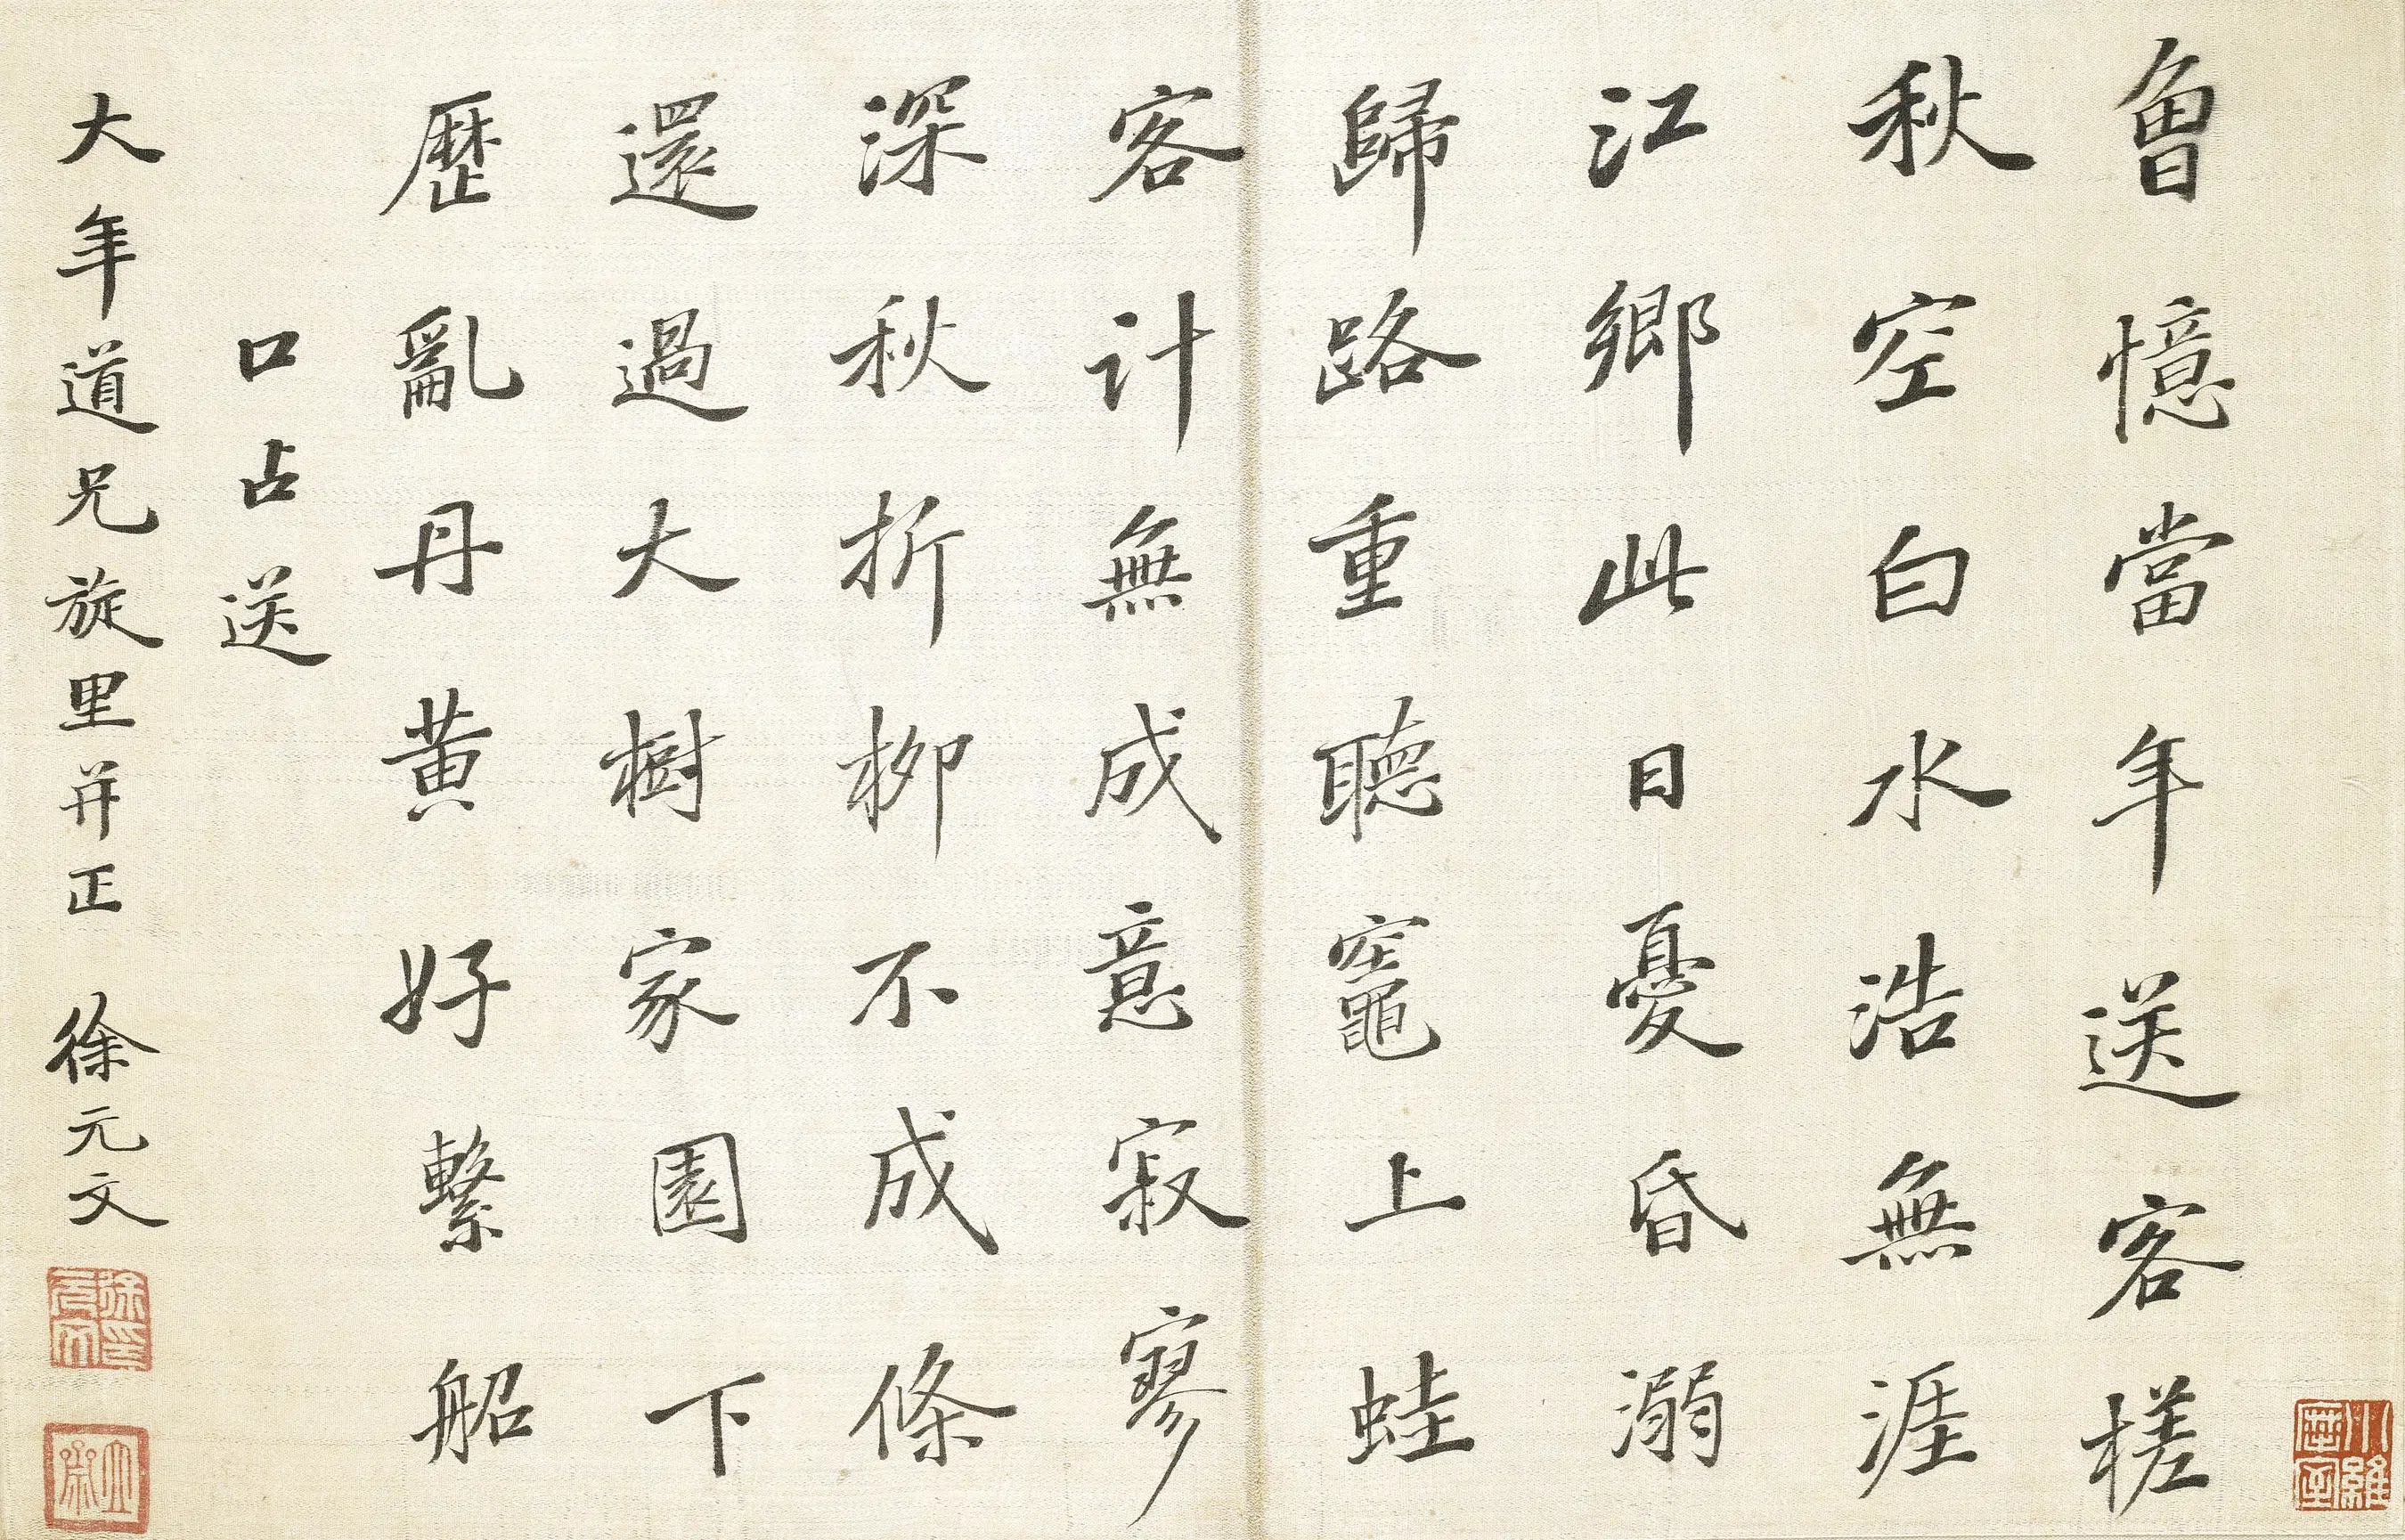 曾憶當年送客槎
秋空白水浩無涯
江鄉此日憂昏溺
歸路重聽竈上蛙
客計無成意寂寥
深秋折柳不成條
還過大樹家園下
歷亂丹黃好繫船
口占送
大年道兄旋里并正 徐元文
徐元文印